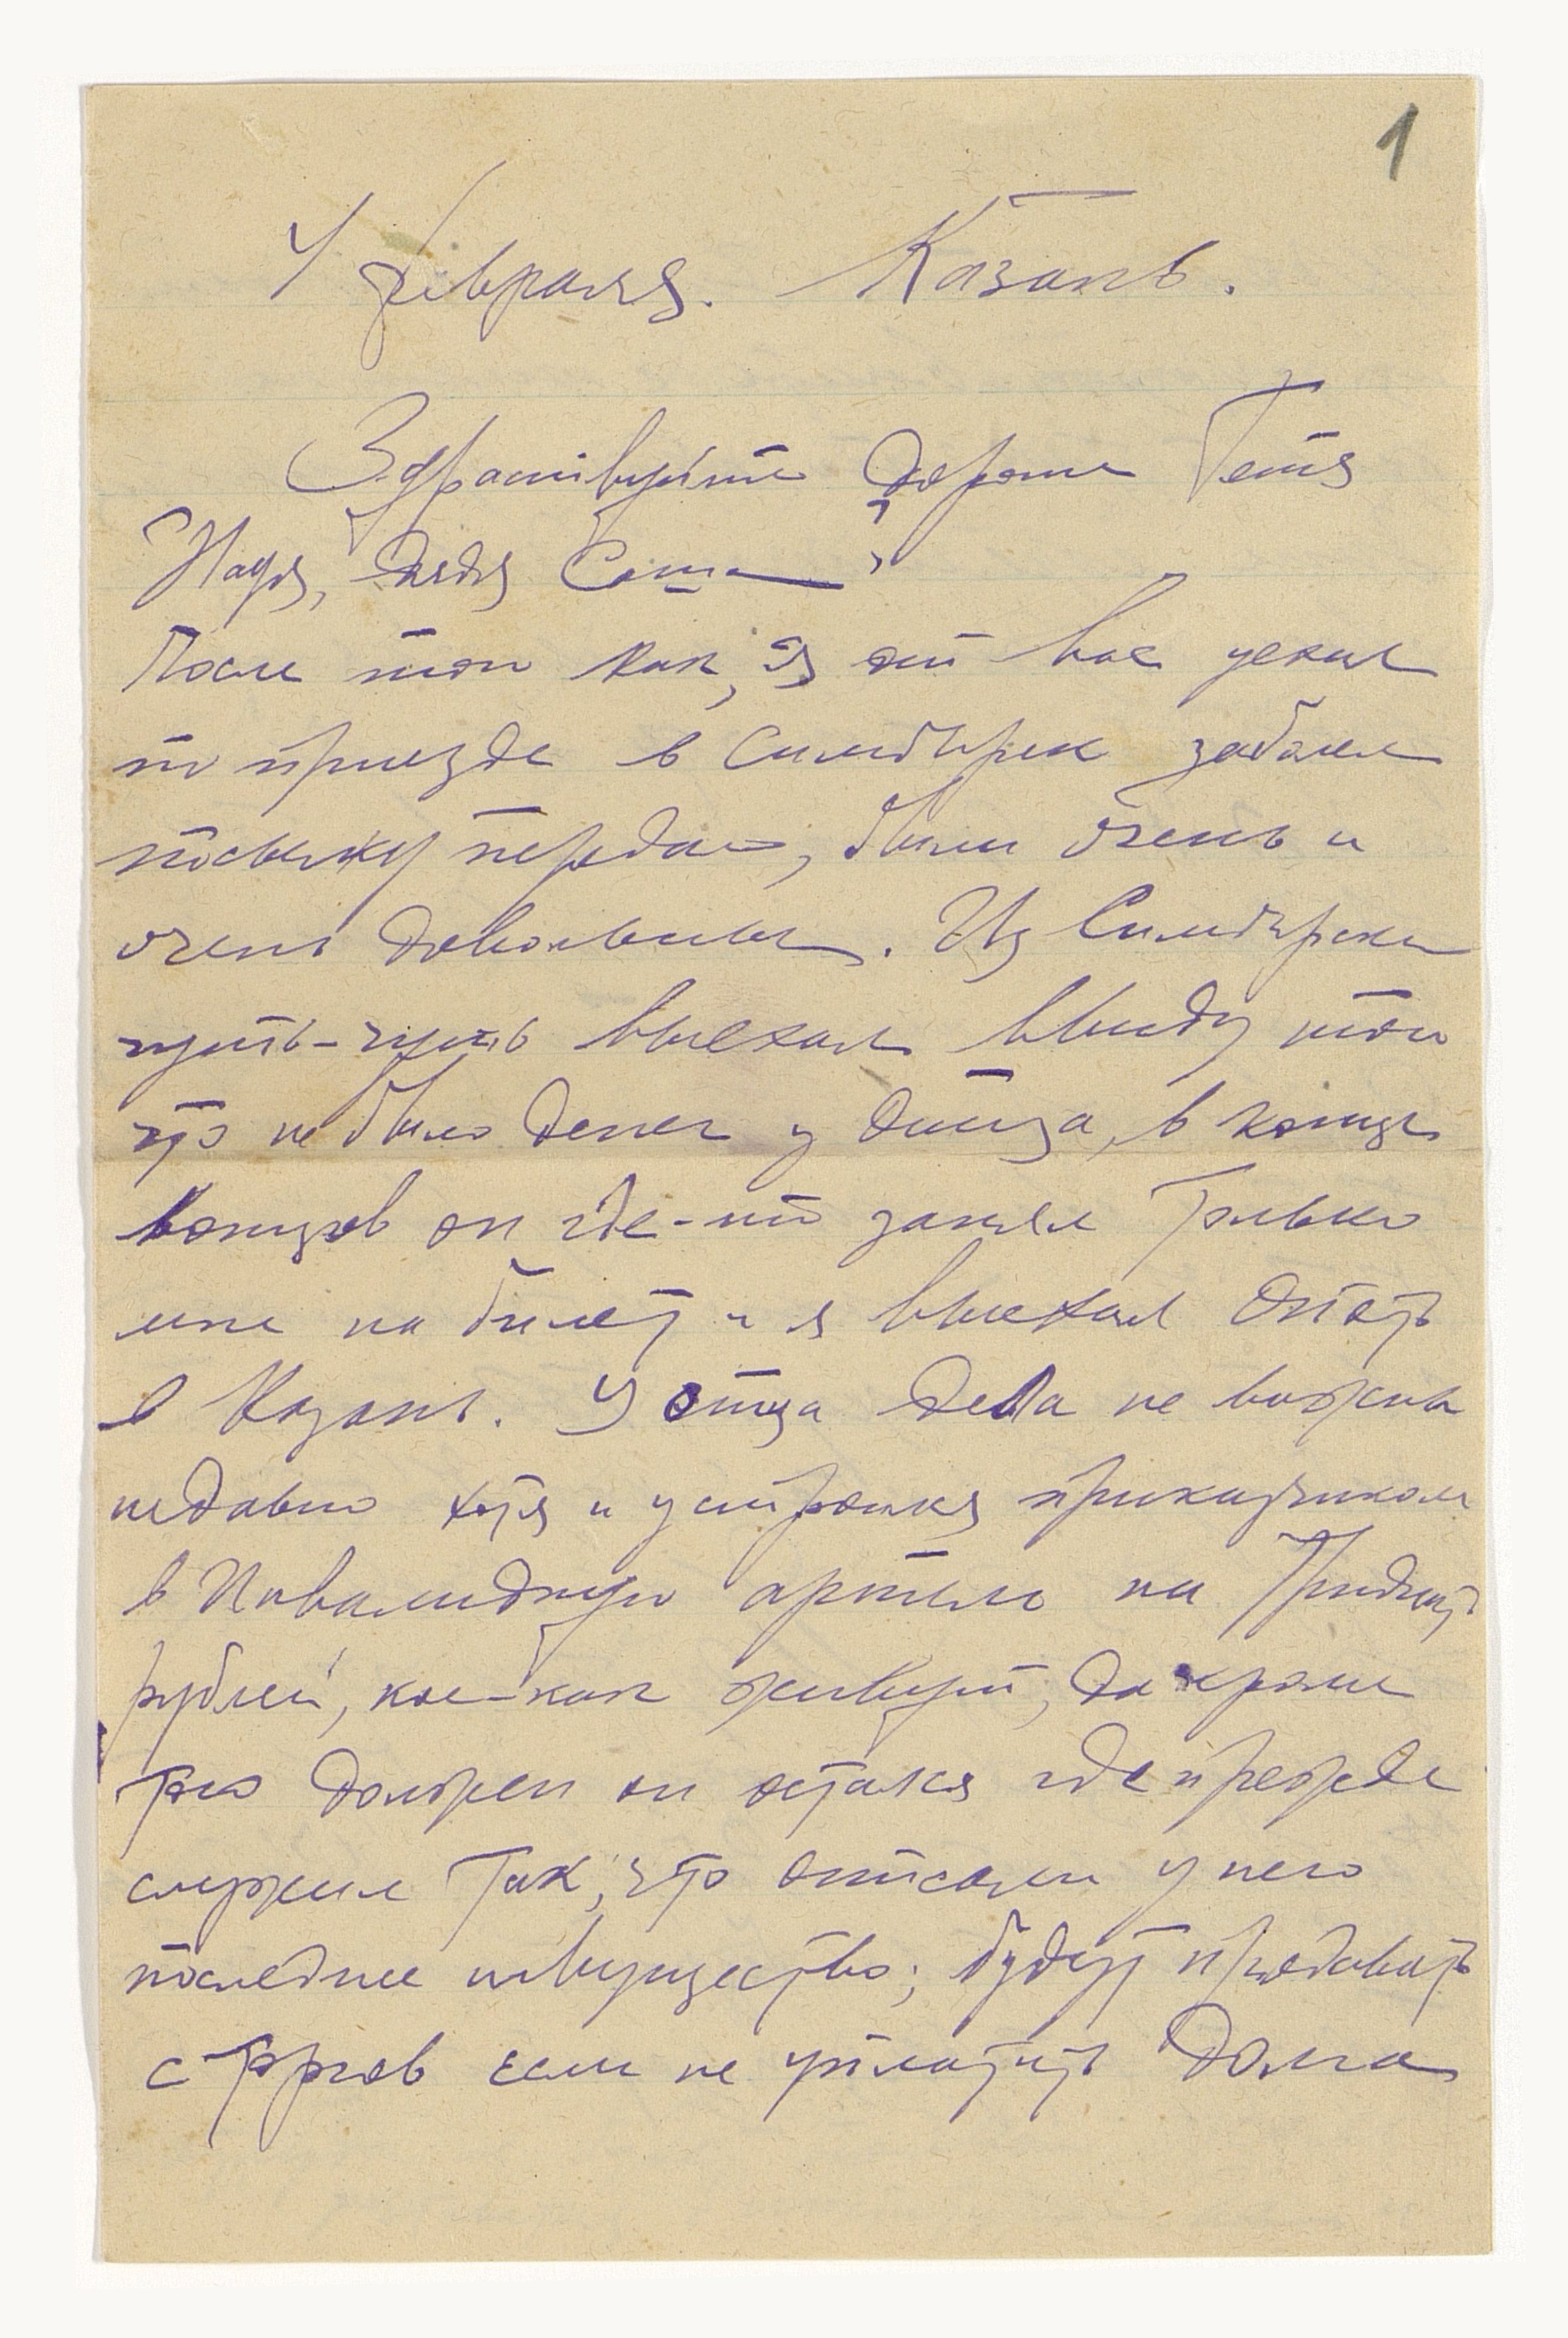 1
4 февраля. Казань.
Здраствуйте дорогие Тетя
Надя, дядя Саша
После того как, я от вас уехал
по приезде в Симбирск заболел
посылку передал, были очень и
очень довольны. Из Симбирска
чуть-чуть выехал ввиду того
что не было денег у отца, в конце
концов он где-то занял только
мне на билет и я выехал опять
в Казань. У отца дела не важны
недавно хотя и устроился приказчиком
в Инвалидную артель на Тридцать
рублей, кое-как живут, да кроме
того должен он остался где прежде
служил так, что описали у него
последнее имущество; будут продавать
с торгов если не уплатить долга